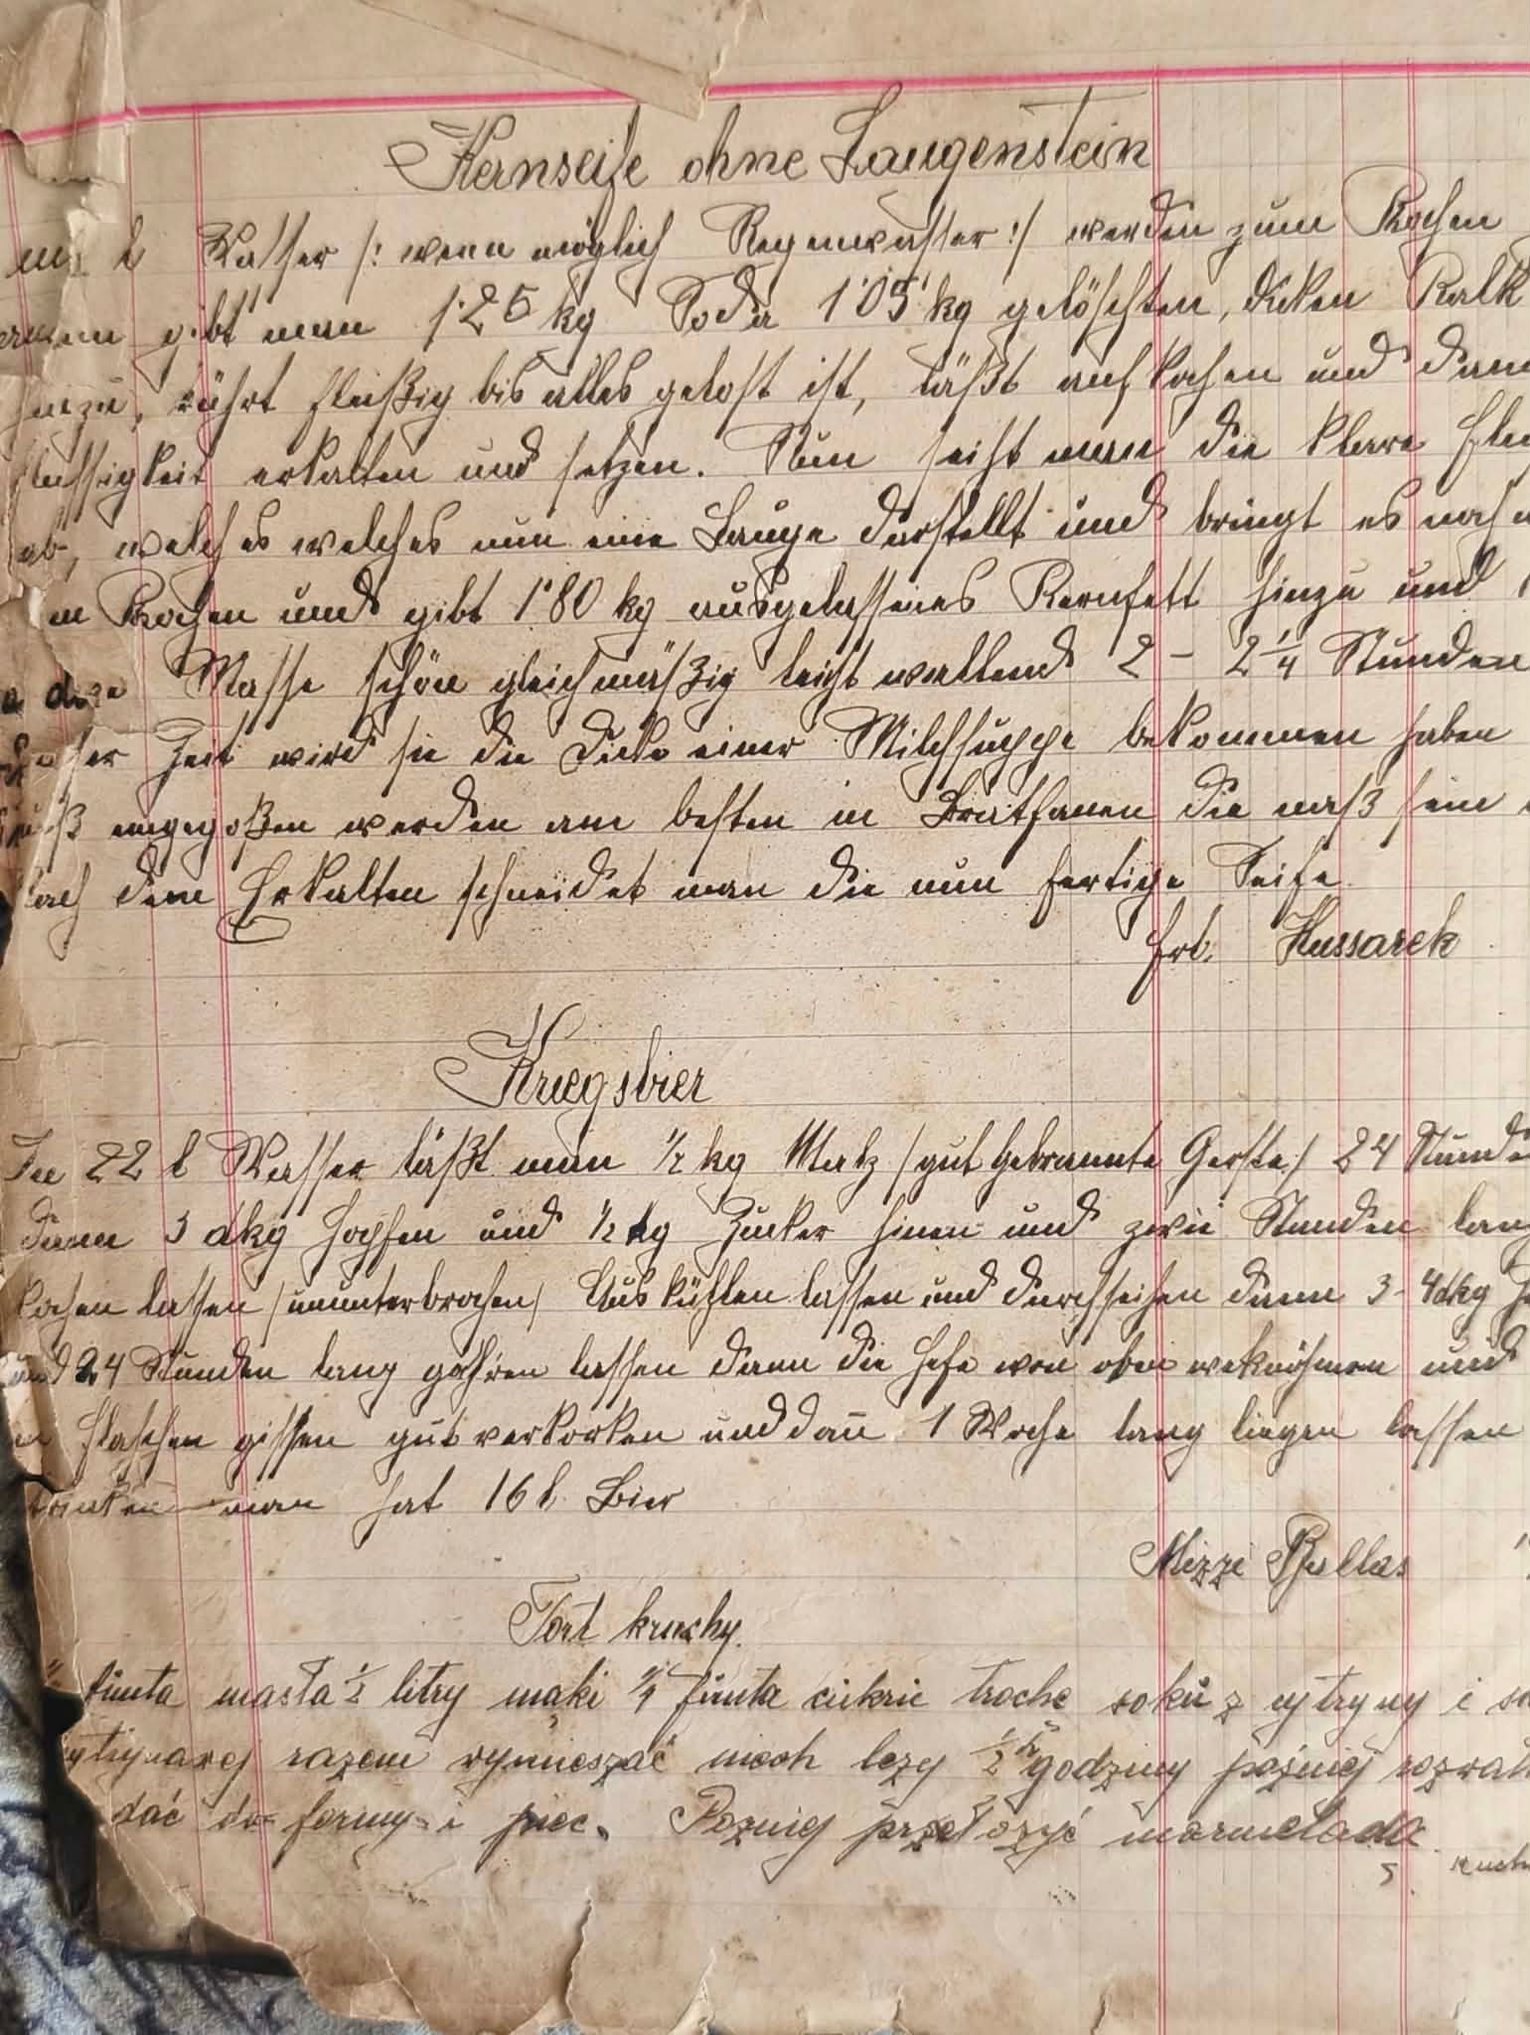 Kernseife ohne Laugenstein
l Wasser /: wenn möglich Regenwasser :/ werden zum Kochen
gibt man 1·25 kg Soda 1·05 kg gelöschten, dicken Kalk
hinzu, rührt fleißig bis alles gelost ist, läßt aufkochen und dann
flüssigkeit erkalten und setzen. Nun seiht man die klare Flü
ab, welches welches nun eine Lauge darstellt und bringt es noch
Kochen und gibt 1·80 kg ausgelassenes Kernfett hinzu und
diese Masse schön gleichmäßig leicht wallend 2 - 2 1/4 Stunden
dieser Zeit wird sie die Dicke einer Milchsuppe bekommen haben
muß eingegoßen werden am besten in Bratfanen die naß sein
nach dem Erkalten schneidet man die nun fertige Seife.
Frl. Hussarek
Kriegsbier
In 22 l Wasser läßt man 1/2 kg Malz / gut gebrannte Gerste / 24 Stunde
dann 3 dkg Hopfen und 1/2 kg Zucker hinein und zwei Stunden lang
kochen lassen / ununterbrochen / Auskühlen lassen und durchseihen dann 3 - 4 dkg
und 24 Stunden lang gähren lassen dann die Hefe von oben weknöhmen und
in Flaschen gissen gut verkorken und dañ 1 Woche lang liegen lassen
trinken man hat 16 l. Bier
Mizzi
Tort kruchy.
funta masła 1/2 litry maki 1/4 funta cukru troche soku z cytryny i
cytrynowej razem wymieszać niech lezy 1/2 godziny poźniej
dać do formy i piec. Pozniej przełozyć marmelada